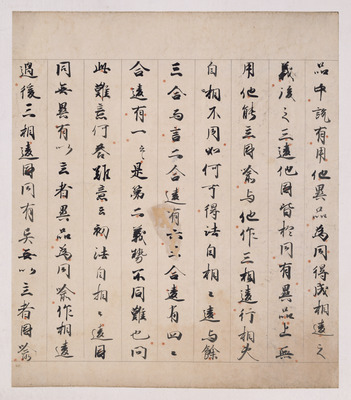 品中說有用他異品為同得成相違之
義後之三違他因皆於同有異品上無
用他能立因喻与他作三相違行相大
自相不同如何可得法自相〻違与餘
三合与言二合違有六三合違有四〻
合違有一〻是第二義勢不同難也問
此難意何答難意云初法自相〻違因
同無異有以立者異品為同喻作相違
過後三相違因同有異無以立者因喻